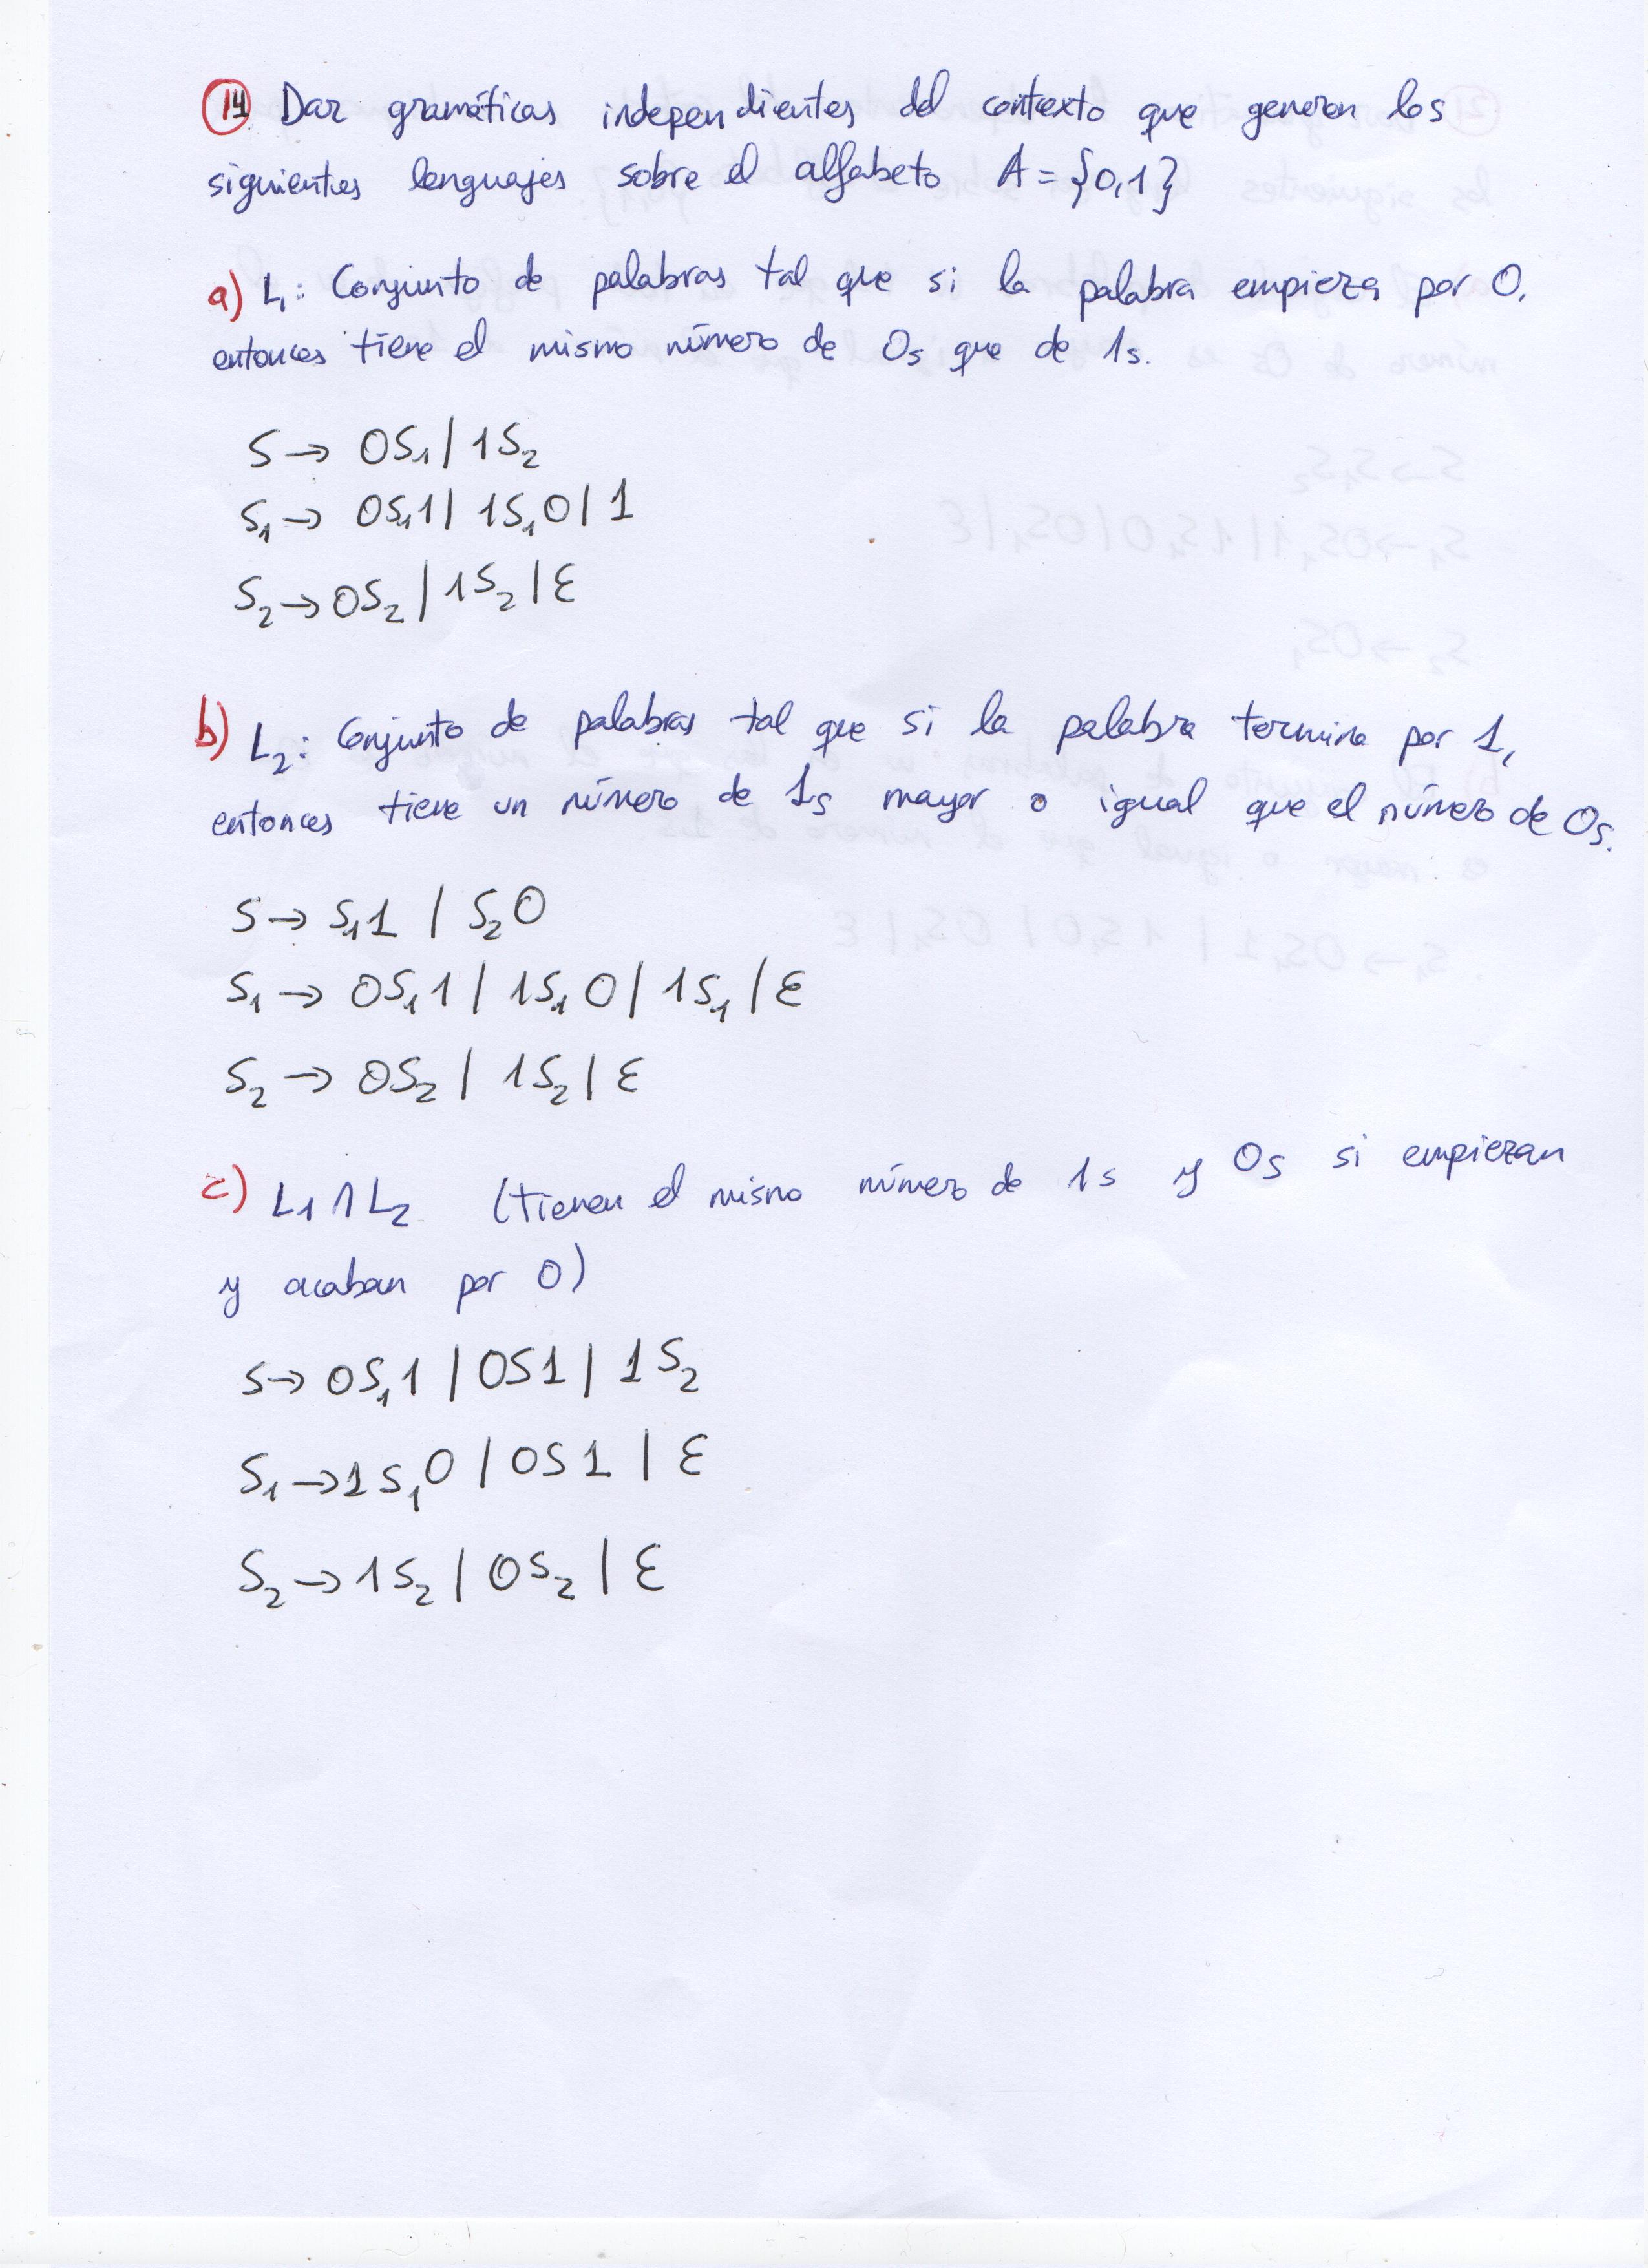 14 Dar gramáticas independientes del contexto que generen los
siguientes lenguajes sobre el alfabeto A = {0,1}
a) L₁: Conjunto de palabras tal que si la palabra empieza por 0,
entonces tiene el mismo número de 0s que de 1s.
S → 0S₁ | 1S₂
S₁ → 0S₁1 | 1S₁0 | 1
S₂ → 0S₂ | 1S₂ | ε
b) L₂: Conjunto de palabras tal que si la palabra termina por 1,
entonces tiene un número de 1s mayor o igual que el número de 0s.
S → S₁1 | S₂0
S₁ → 0S₁1 | 1S₁0 | 1S₁ | ε
S₂ → 0S₂ | 1S₂ | ε
c) L₁ ∩ L₂ (tienen el mismo número de 1s y 0s si empiezan
y acaban por 0)
S → 0S₁1 | 0S1 | 1S₂
S₁ → 1S₁0 | 0S1 | ε
S₂ → 1S₂ | 0S₂ | ε